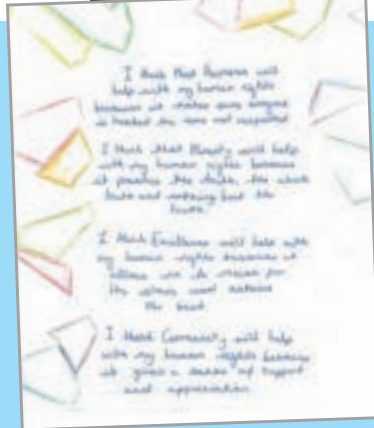 I think that Fairness will
help with my human rights
because it makes sure everyone
is treated the same and respected
I think that Honesty will help
with my human rights because
it promotes the truth, the whole
truth and nothing but the
truth.
I think Excellence will help with
my human rights because it
allows me to strive for
the stars and achieve
the best.
I think Community will help
with my human rights because
it gives a sense of support
and appreciation